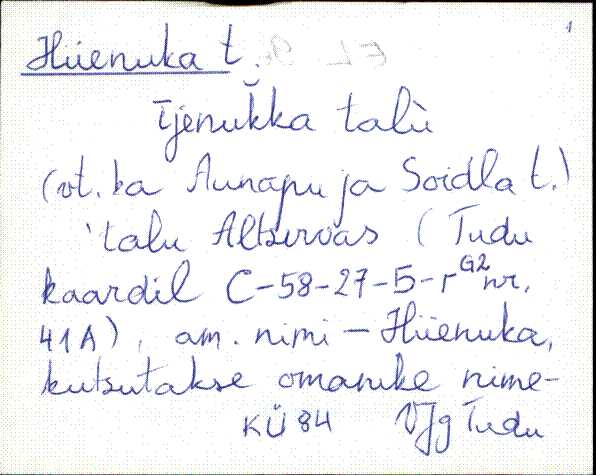 1
Hiienuka t.
ījenŭkka talù
(vt. ka Aunapu ja Soidla t.)
'talu Altservas (Tudu
kaardil C-58-27-Б-г G2 nr.
41A), am. nimi – Hiienuka,
kutsutakse omanike nime-
KÜ 84 VJg Tudu